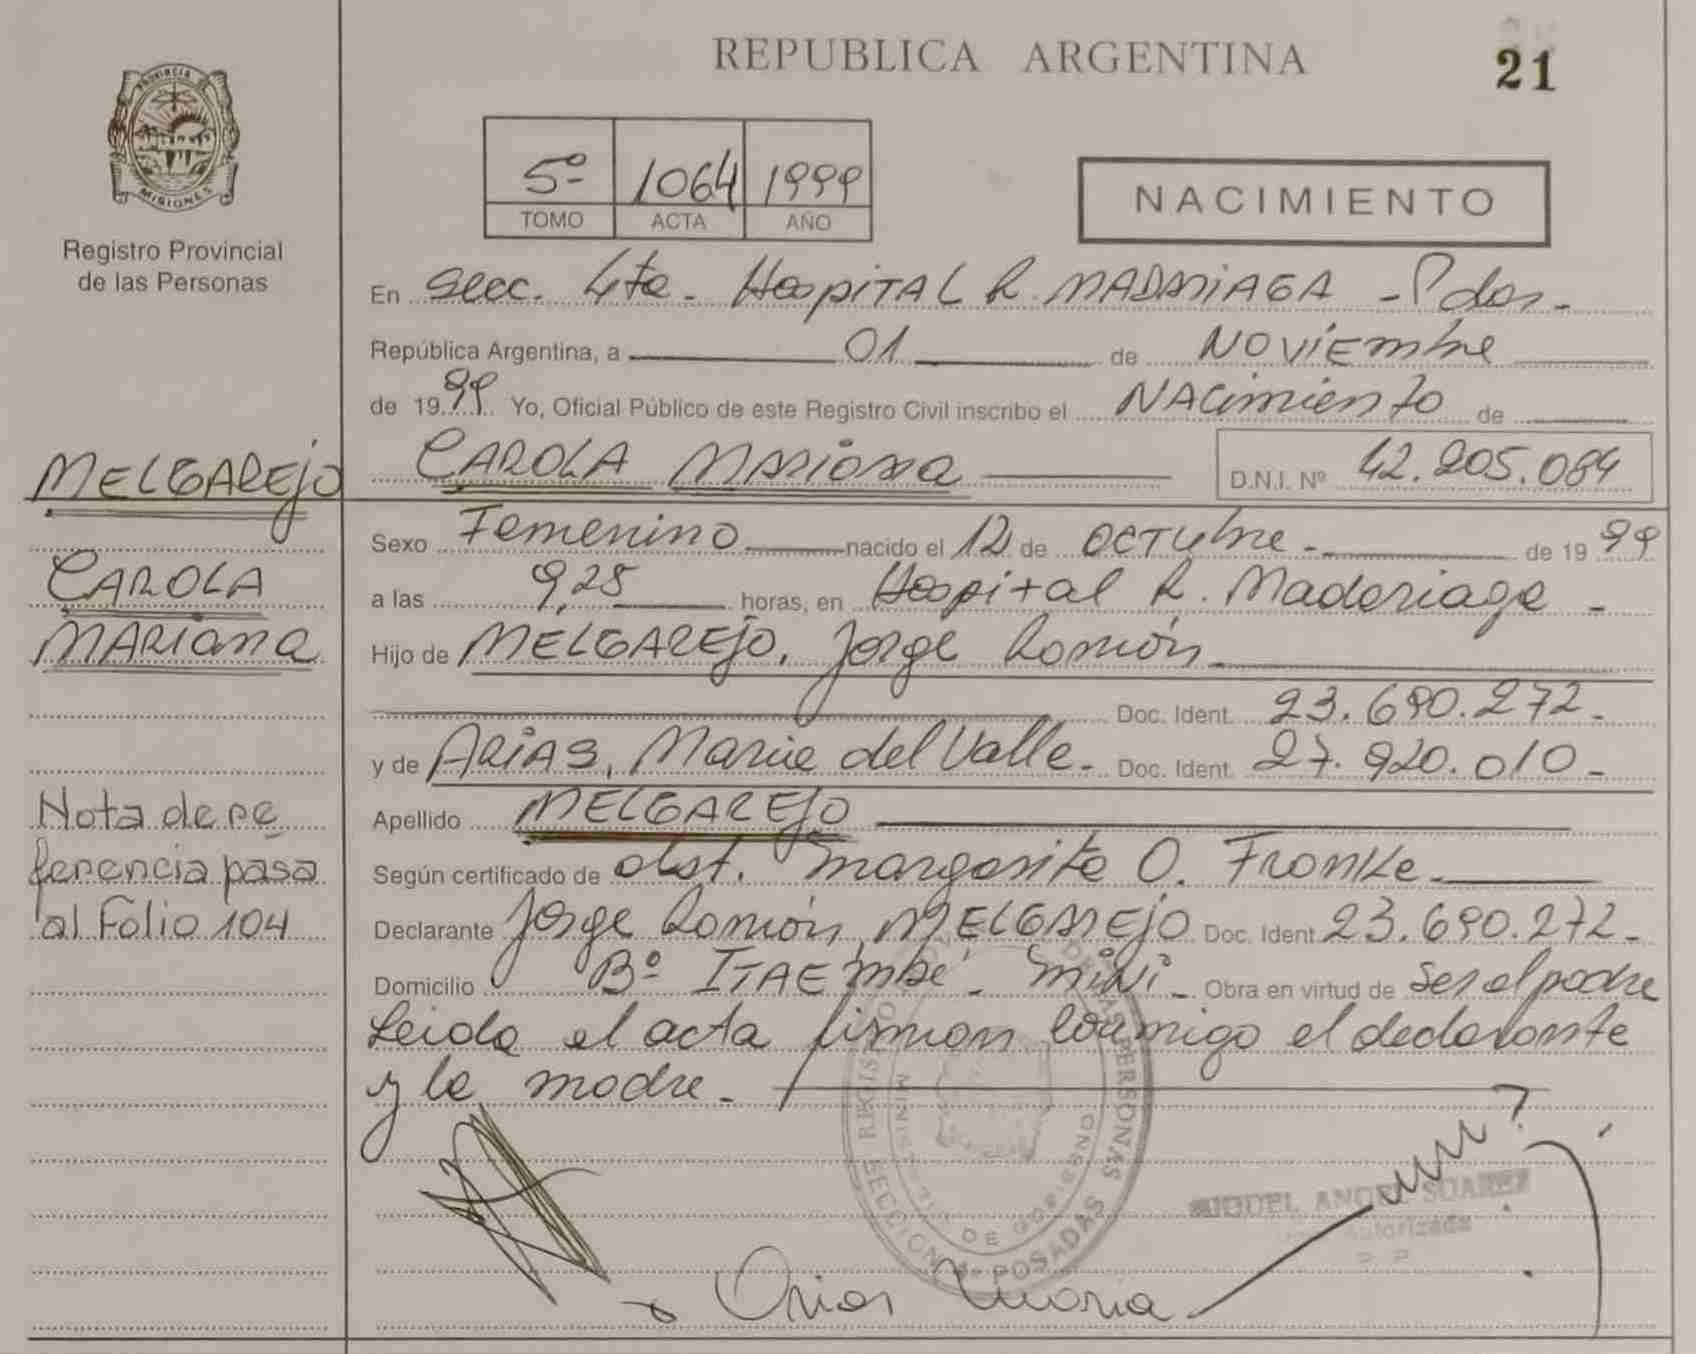 REPUBLICA ARGENTINA
21
PROVINCIA DE
MISIONES
Registro Provincial
de las Personas
5º 1064 1999
TOMO ACTA AÑO
NACIMIENTO
En Secc. 4ta - Hospital R. MADARIAGA - Pdas -
República Argentina, a 01 de Noviembre
de 1999. Yo, Oficial Público de este Registro Civil inscribo el NAcimiento de
MELGAREJO
CAROLA MARIANA D.N.I. Nº 42.205.084
Sexo Femenino nacido el 12 de OCTUbre - de 1999
CAROLA
a las 9,25 horas, en Hospital R. Madariaga -
MARIANA
Hijo de MELGAREJO, Jorge Ramón
Doc. Ident. 23.690.272-
y de ARIAS, Maria del Valle - Doc. Ident. 27.920.010-
Nota de re
ferencia pasa
al Folio 104
Apellido MELGAREJO
Según certificado de obst. Margarita O. Franke
Declarante Jorge Ramón MELGAREJO Doc. Ident 23.690.272-
Domicilio Bº ITAEmbé - miNi - Obra en virtud de ser el padre
Leida el acta firman conmigo el declarante
y la madre -
REGISTRO DE LAS PERSONAS
MINISTERIO DE GOBIERNO
SECCION 4ª POSADAS
MIGUEL ANGEL SUAREZ
Autorizada
Arias Maria